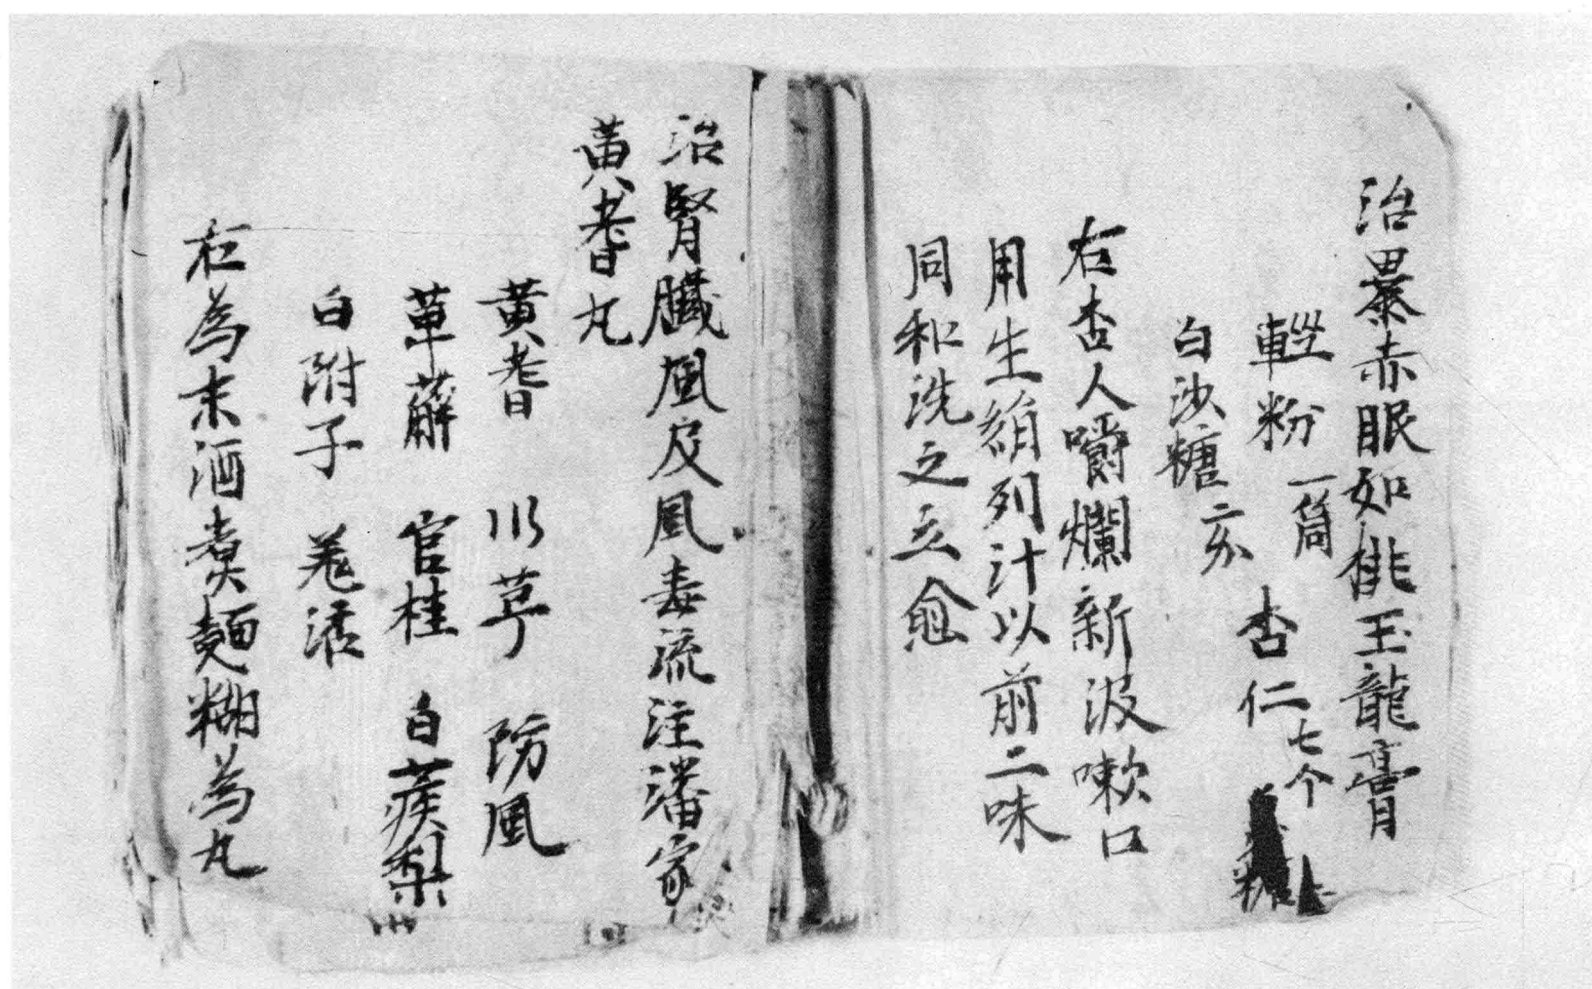 治暴赤眼如桃玉龍膏
輕粉一筒 杏仁七个
白沙糖二分
右杏人嚼爛新汲嗽口
用生絹列汁以前二味
同和洗之立愈
治腎臓風及風毒流注潘家
黄耆丸
黄耆 川芎 防風
草薢 官桂 白蒺梨
白附子 羌活
右為末酒煮麵糊為丸